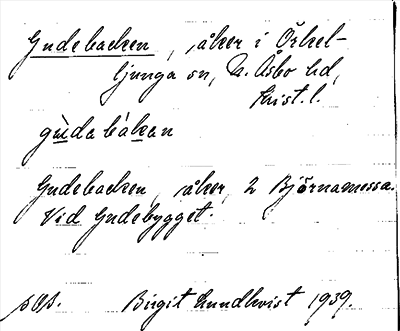 Gudebacken, åker i Örkel-
ljunga sn, N. Åsbo hd,
Krist. l.
gùdabákan
Gudebacken, åker, 2 Björnamossa.
Vid Gudebygget.
Birgit Lundkvist 1939.